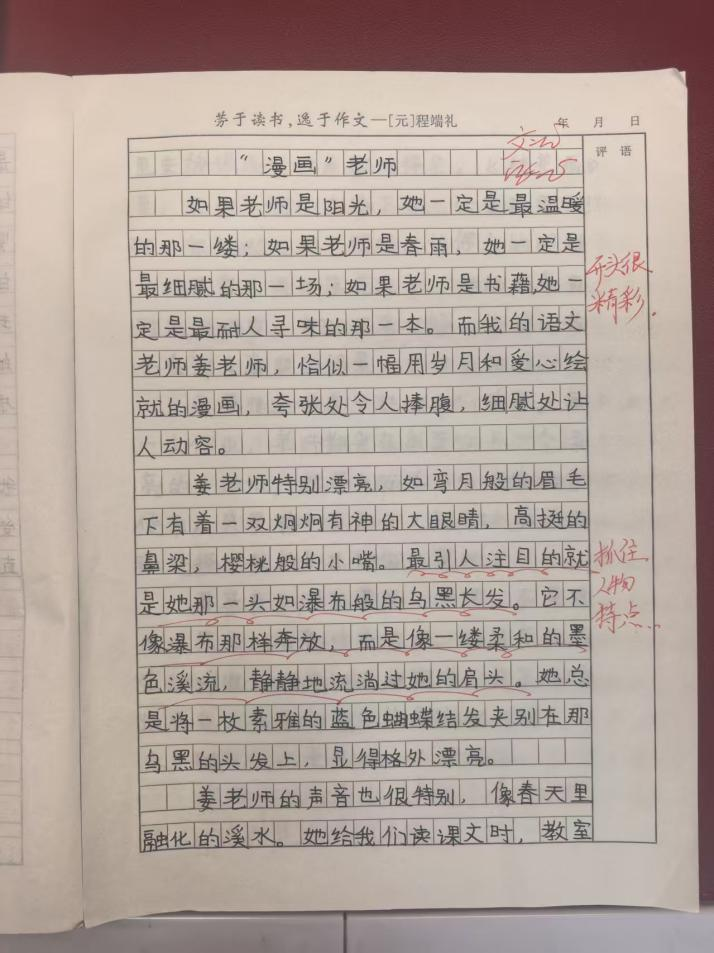 劳于读书，逸于作文—[元]程端礼
年 月 日
评 语
“漫画”老师
如果老师是阳光，她一定是最温暖
的那一缕；如果老师是春雨，她一定是
最细腻的那一场；如果老师是书籍，她一
定是最耐人寻味的那一本。而我的语文
老师姜老师，恰似一幅用岁月和爱心绘
就的漫画，夸张处令人捧腹，细腻处让
人动容。
开头很
精彩.
姜老师特别漂亮，如弯月般的眉毛
下有着一双炯炯有神的大眼睛，高挺的
鼻梁，樱桃般的小嘴。最引人注目的就
是她那一头如瀑布般的乌黑长发。它不
像瀑布那样奔放，而是像一缕柔和的墨
色溪流，静静地流淌过她的肩头。她总
是将一枚素雅的蓝色蝴蝶结发夹别在那
乌黑的头发上，显得格外漂亮。
抓住
人物
特点...
姜老师的声音也很特别，像春天里
融化的溪水。她给我们读课文时，教室